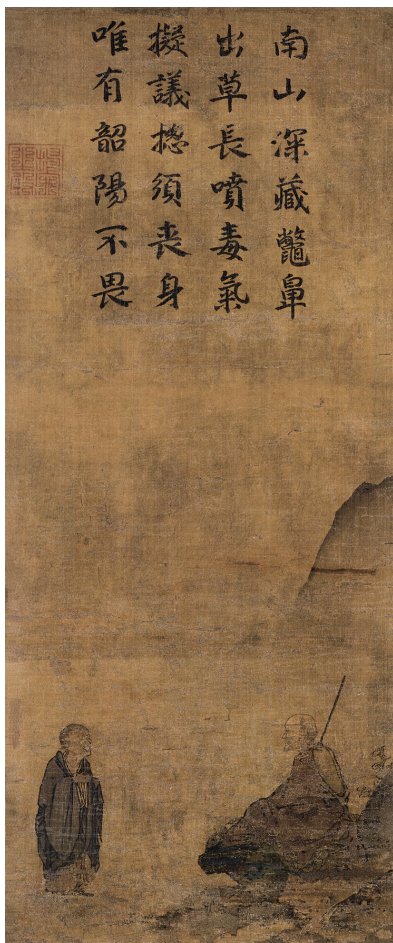 南山深藏鼈鼻
出草長噴毒氣
擬議摠須喪身
唯有韶陽不畏